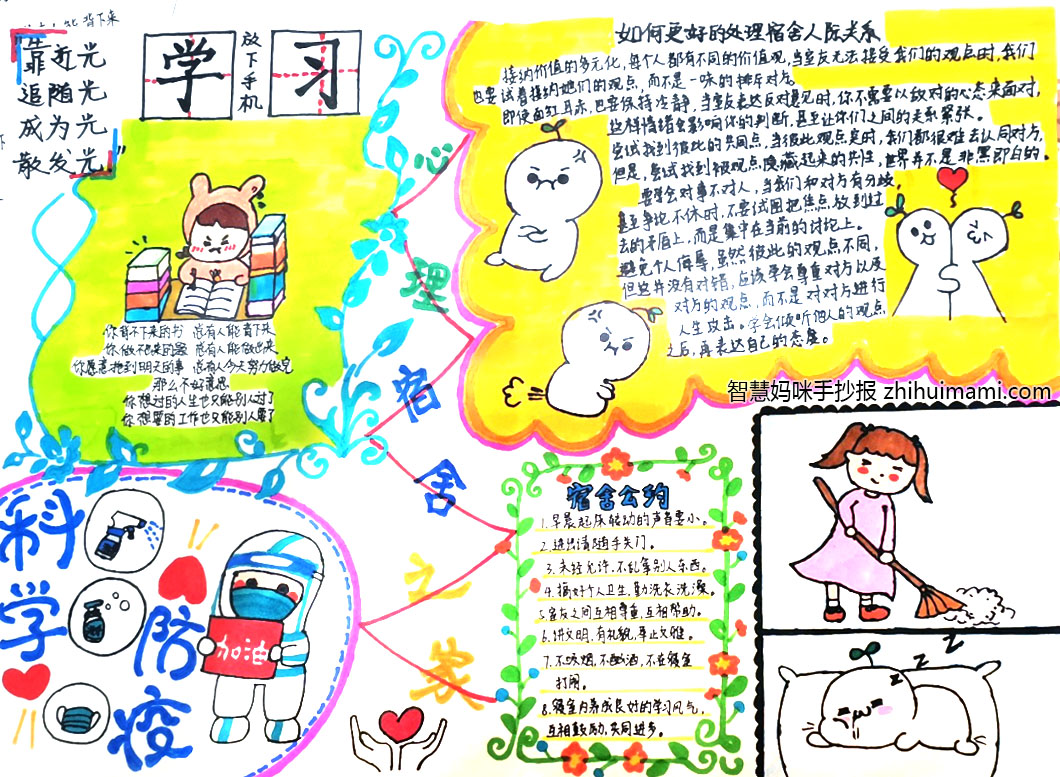 靠近光
追随光
成为光
散发光
放下手机
学习
你背不下来的书 总有人能背下来
你做不出来的题 总有人能做出来
你愿意拖到明天的事 总有人今天努力做完
那么不好意思
你想过的人生也只能别人过了
你想要的工作也只能别人要了
心理宿舍之家
如何更好的处理宿舍人际关系
接纳价值的多元化,每个人都有不同的价值观,当室友无法接受我们的观点时,我们
也要试着接纳她们的观点,而不是一味的排斥对方。
即使面红耳赤,也要保持冷静,当室友表达反对意见时,你不需要以敌对的心态来面对,
这样情绪会影响你的判断,甚至让你们之间的关系紧张。
尝试找到彼此的共同点,当彼此观点
时,我们都很难去认同对方,
但是,尝试找到被观点隐藏起来的共性,世界并不是非黑即白的。
要学会对事不对人,当我们和对方有分歧,
甚至争论不休时,不要试图把焦点放到过
去的矛盾上,而是集中在当前的讨论上。
避免个人侮辱,虽然彼此的观点不同,
但这并没有对错,应该学会尊重对方以及
对方的观点,而不是对对方进行
人生攻击。学会倾听他人的观点
之后,再表达自己的态度。
智慧妈咪手抄报 zhihuimami.com
科学防疫
加油
宿舍公约
1.早晨起床移动的声音要小。
2.进出请随手关门。
3.未经允许,不乱拿别人东西。
4.搞好个人卫生,勤洗衣洗澡。
5.室友之间互相尊重,互相帮助。
6.讲文明,有礼貌,举止文雅。
7.不吸烟,不酗酒,不在寝室
打闹。
8.寝室内养成良好的学习风气,
互相鼓励,共同进步。
z z z